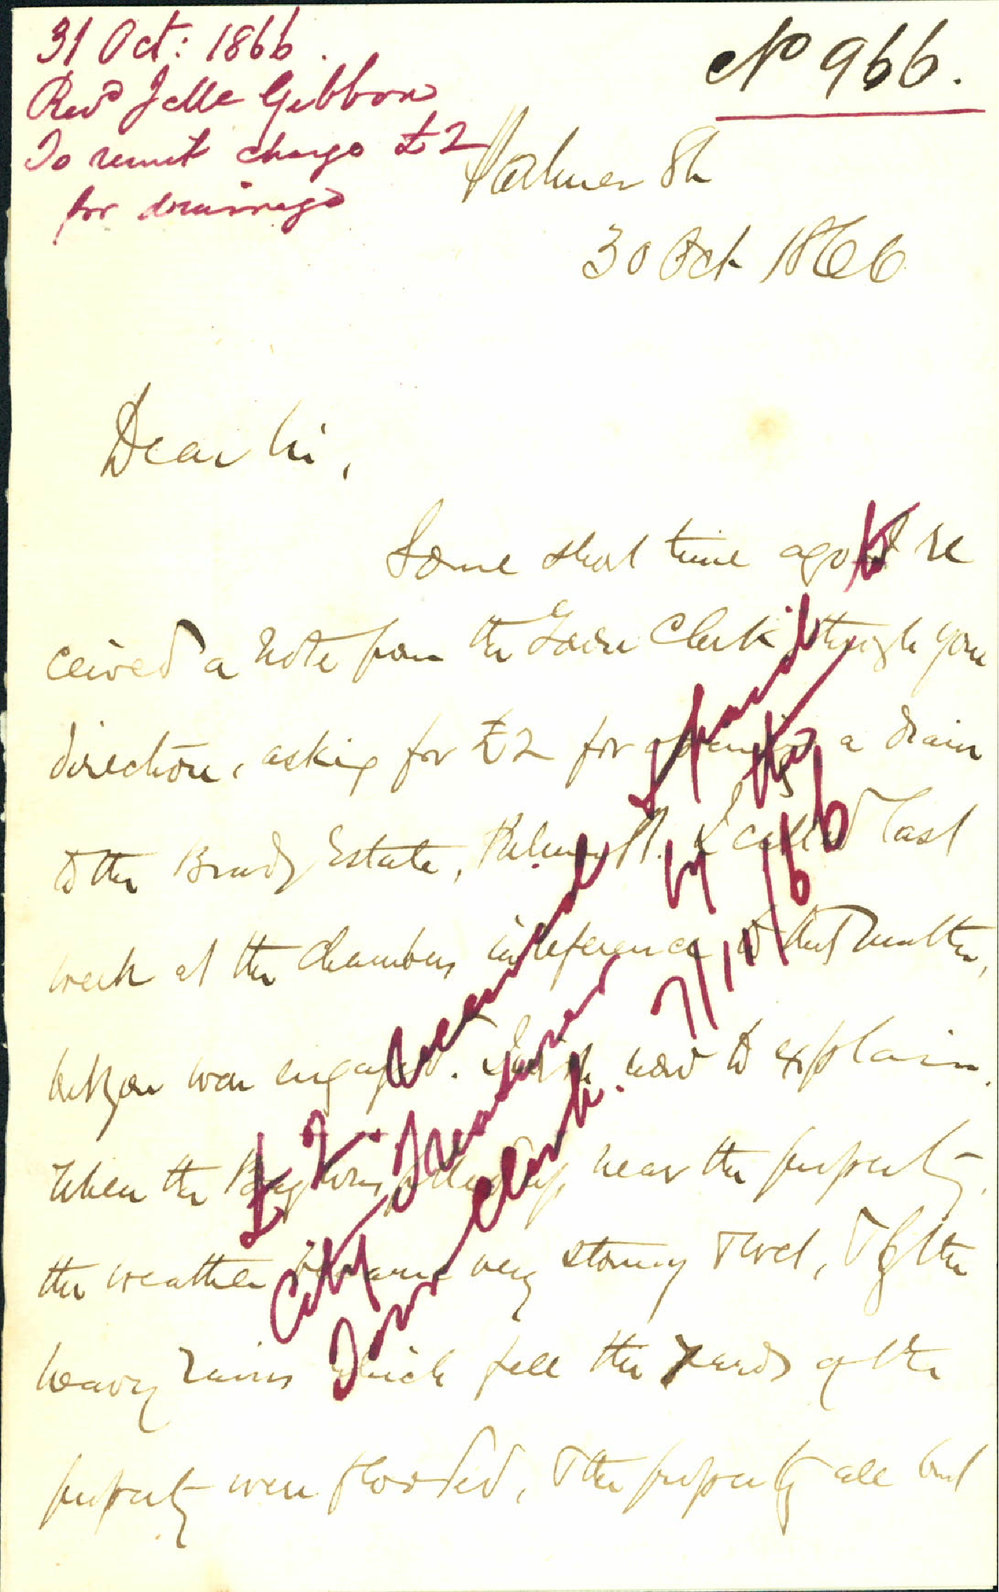 31 Oct: 1866.
Revd J McGibbon
To remit charge £2
for drainage
No 966.
Palmer St
30 Oct 1866
Dear Sir,
Some short time ago I re
ceived a note from the Town Clerk, through your
direction, asking for £2 for opening a drain
to the Brady Estate, Palmer St. I called last
week at the Chambers in reference to that matter,
but you were engaged. I wish now to explain.
When the
near the property,
the weather became very stormy & wet, & by the
heavy rains which fell the yards of the
property were flooded, & the property all but
£2. received & paid to
City Treasurer by the
Town Clerk. 7/11/66